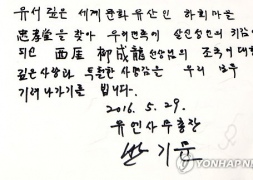 유서 깊은 세계 문화 유산인 하회 마을
忠孝堂을 찾아 우리 민족이 살신성인의 귀감이
되신 西厓 柳成龍 선생님의 조국에 대한
깊은 사랑과 투철한 사명감을 우리 모두
기려나가기를 빕니다.
2016. 5. 29.
유엔사무총장
반기문
YONHAPNEWS